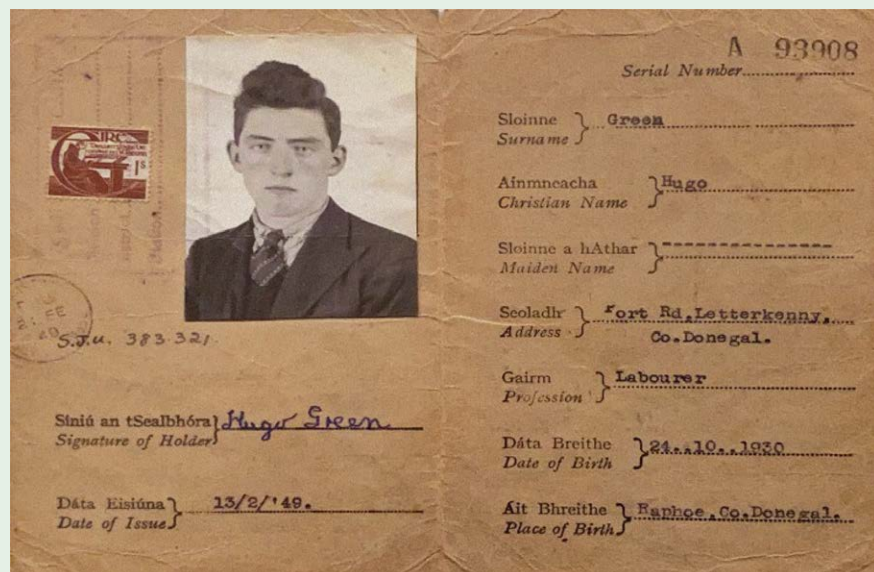 1s
S.J.U. 383.321.
Síniú an tSealbhóra
Signature of Holder
Hugo Green
Dáta Eisiúna
Date of Issue
13/2/'49.
A 93908
Serial Number
Sloinne
Surname
Green
Ainmneacha
Christian Name
Hugo
Sloinne a hAthar
Maiden Name
Seoladh
Address
Port Rd, Letterkenny,
Co. Donegal.
Gairm
Profession
Labourer
Dáta Breithe
Date of Birth
24..10..1930
Áit Bhreithe
Place of Birth
Raphoe, Co. Donegal.